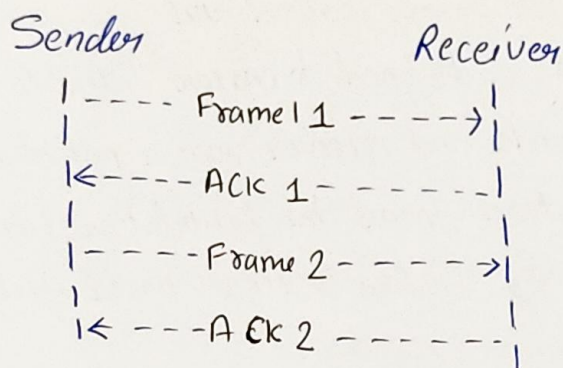 Sender Receiver
Frame1 1
ACK 1
Frame 2
ACK 2